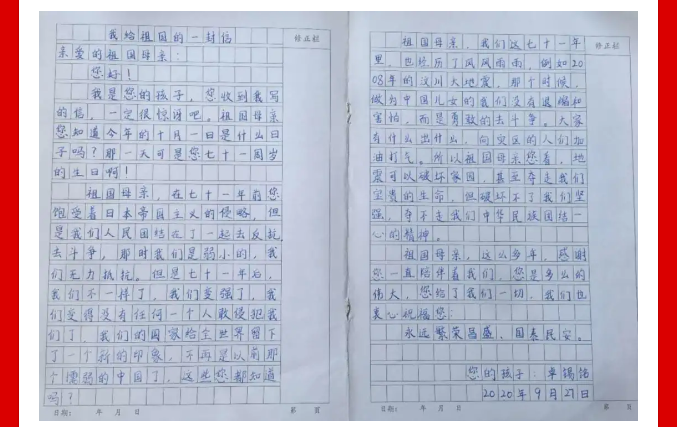 我给祖国的一封信
修正栏
亲爱的祖国母亲:
您好!
我是您的孩子,您收到我写
的信,一定很惊讶吧。祖国母亲
您知道今年的十月一日是什么日
子吗?那一天可是您七十一周岁
的生日啊!
祖国母亲,在七十一年前您
饱受着日本帝国主义的侵略,但
是我们人民团结在了一起去反抗
去斗争,那时我们是弱小的,我
们无力抵抗。但是七十一年后,
我们不一样了,我们变强了,我
们变得没有任何一个人敢侵犯我
们了,我们的国家给全世界留下
了一个新的印象,不再是以前那
个懦弱的中国了,这些您都知道
吗?
日期: 年 月 日 第 页
祖国母亲,我们这七十一年
修正栏
里,也经历了风风雨雨,例如20
08年的汶川大地震,那个时候,
做为中国儿女的我们没有退缩和
害怕,而是勇敢的去斗争。大家
有什么出什么,向灾区的人们加
油打气。所以祖国母亲您看,地
震可以破坏家园,甚至夺走我们
宝贵的生命,但破坏不了我们坚
强,夺不走我们中华民族团结一
心的精神。
祖国母亲,这么多年,感谢
您一直陪伴着我们,您是多么的
伟大,您给了我们一切,我们也
衷心祝福您:
永远繁荣昌盛、国泰民安。
您的孩子:卓锡怡
2020年9月27日
日期: 年 月 日 第 页